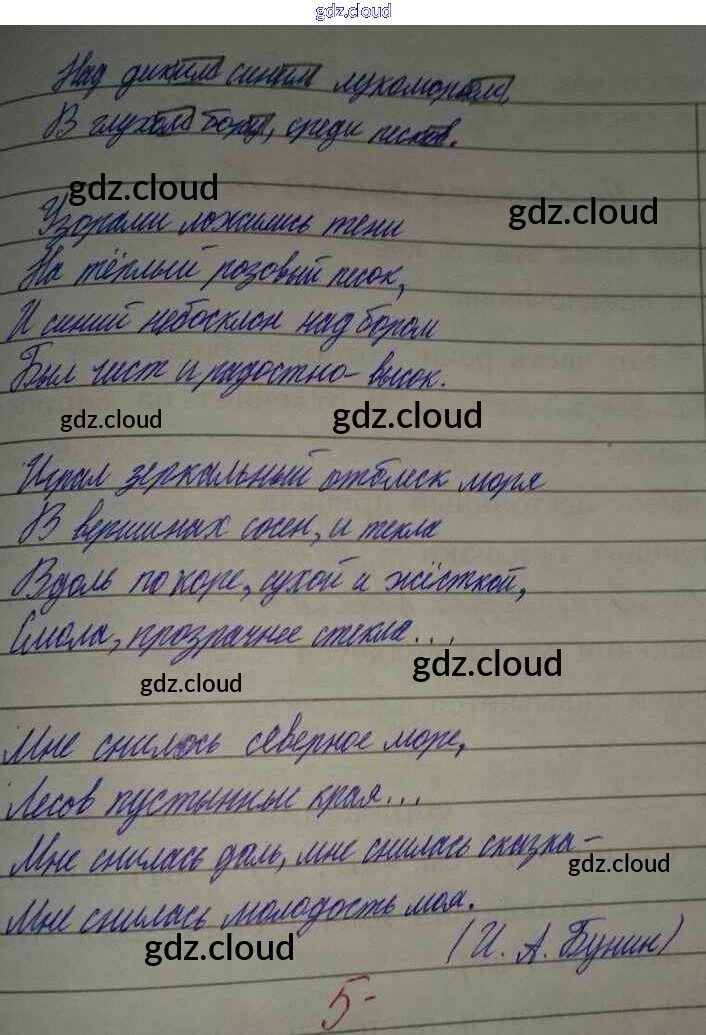 gdz.cloud
Над диким синим лукоморьем,
В глухом бору, среди песков.
gdz.cloud
gdz.cloud
Узорами ложились тени
На тёплый розовый песок,
И синий небосклон над бором
Был чист и радостно-высок.
gdz.cloud
gdz.cloud
Играл зеркальный отблеск моря
В вершинах сосен, и текла
Вдоль по коре, сухой и жёсткой,
Смола, прозрачнее стекла...
gdz.cloud
gdz.cloud
Мне снилось северное море,
Лесов пустынные края...
Мне снилась даль, мне снилась сказка-
gdz.cloud
Мне снилась молодость моя.
gdz.cloud
(И. А. Бунин)
5-